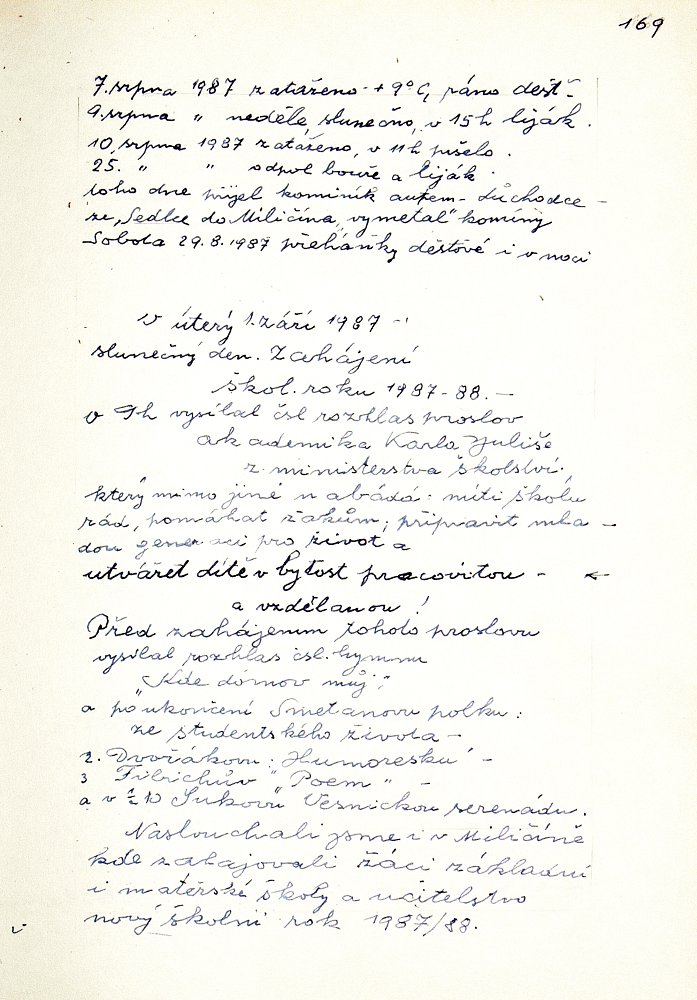 169
7. srpna 1987 zataženo + 9° C, ráno déšť -
9. srpna " neděle, slunečno, v 15 h liják.
10. srpna 1987 zataženo, v 11 h pršelo.
25. " " odpol bouře a liják.
toho dne přijel kominík autem - důchodce -
ze "Sedlce do Miličína, "vymetal" komíny
Sobota 29.8.1987 přeháňky dešťové i v noci
V úterý 1. září 1987 -
slunečný den. Zahájení
škol. roku 1987-88. -
v 9 h vysílal čsl rozhlas proslov
akademika Karla Juliše
z ministerstva školství,
který mimo jiné nabádá: míti školu
rád, pomáhat žákům; připravit mla -
dou generaci pro život a
utvářet dítě v bytost pracovitou - ←
a vzdělanou!
Před zahájením tohoto proslovu
vysílal rozhlas čsl. hymnu
"Kde domov můj,"
a po ukončení Smetanovu polku:
ze studentského života -
2. Dvořákovu: Humoresku -
3 Fibichův "Poem" -
a v ½ 10 Sukovu Vesnickou serenádu.
Naslouchali jsme i v Miličíně
kde zahajovali žáci základní
i mateřské školy a učitelstvo
nový školní rok 1987/88.